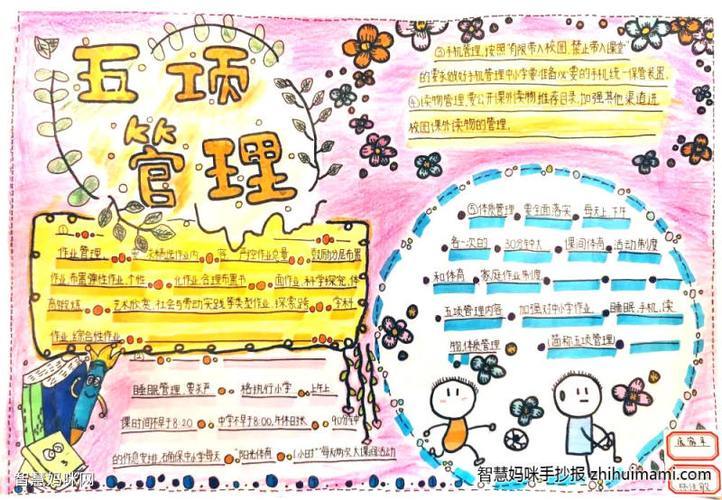 五项
管理
③手机管理,按照"有限带入校园 禁止带入课堂"
的要求做好手机管理中小学要准备 要的手机统一保管装置.
④读物管理 要公开课外读物推荐目录.加强其他渠道进
校园课外读物的管理.
作业管理, 作业内容 严控作业总量 鼓励分层布置
作业 布置弹性作业,个性化作业 合理布置书面作业,科学探究,体
艺术欣赏,社会与劳动实践等类型作业,探索跨学科
作业,综合性作业
睡眠管理,要求严格执行小学上午上
课时间不早于8:20 中学不早于8:00,午休日长 90分钟
的作息安排,确保中小学每天 "阳光体育1小时" 每天两次大课间活动
⑤体质管理 要全面落实 每天上、下午
各一次的 30分钟大 课间体育 活动制度
和体育 家庭作业制度
五项管理内容 加强对中小学作业 睡眠、手机、读
物、体质管理 简称五项管理
智慧妈咪网
智慧妈咪手抄报 zhihuimami.com